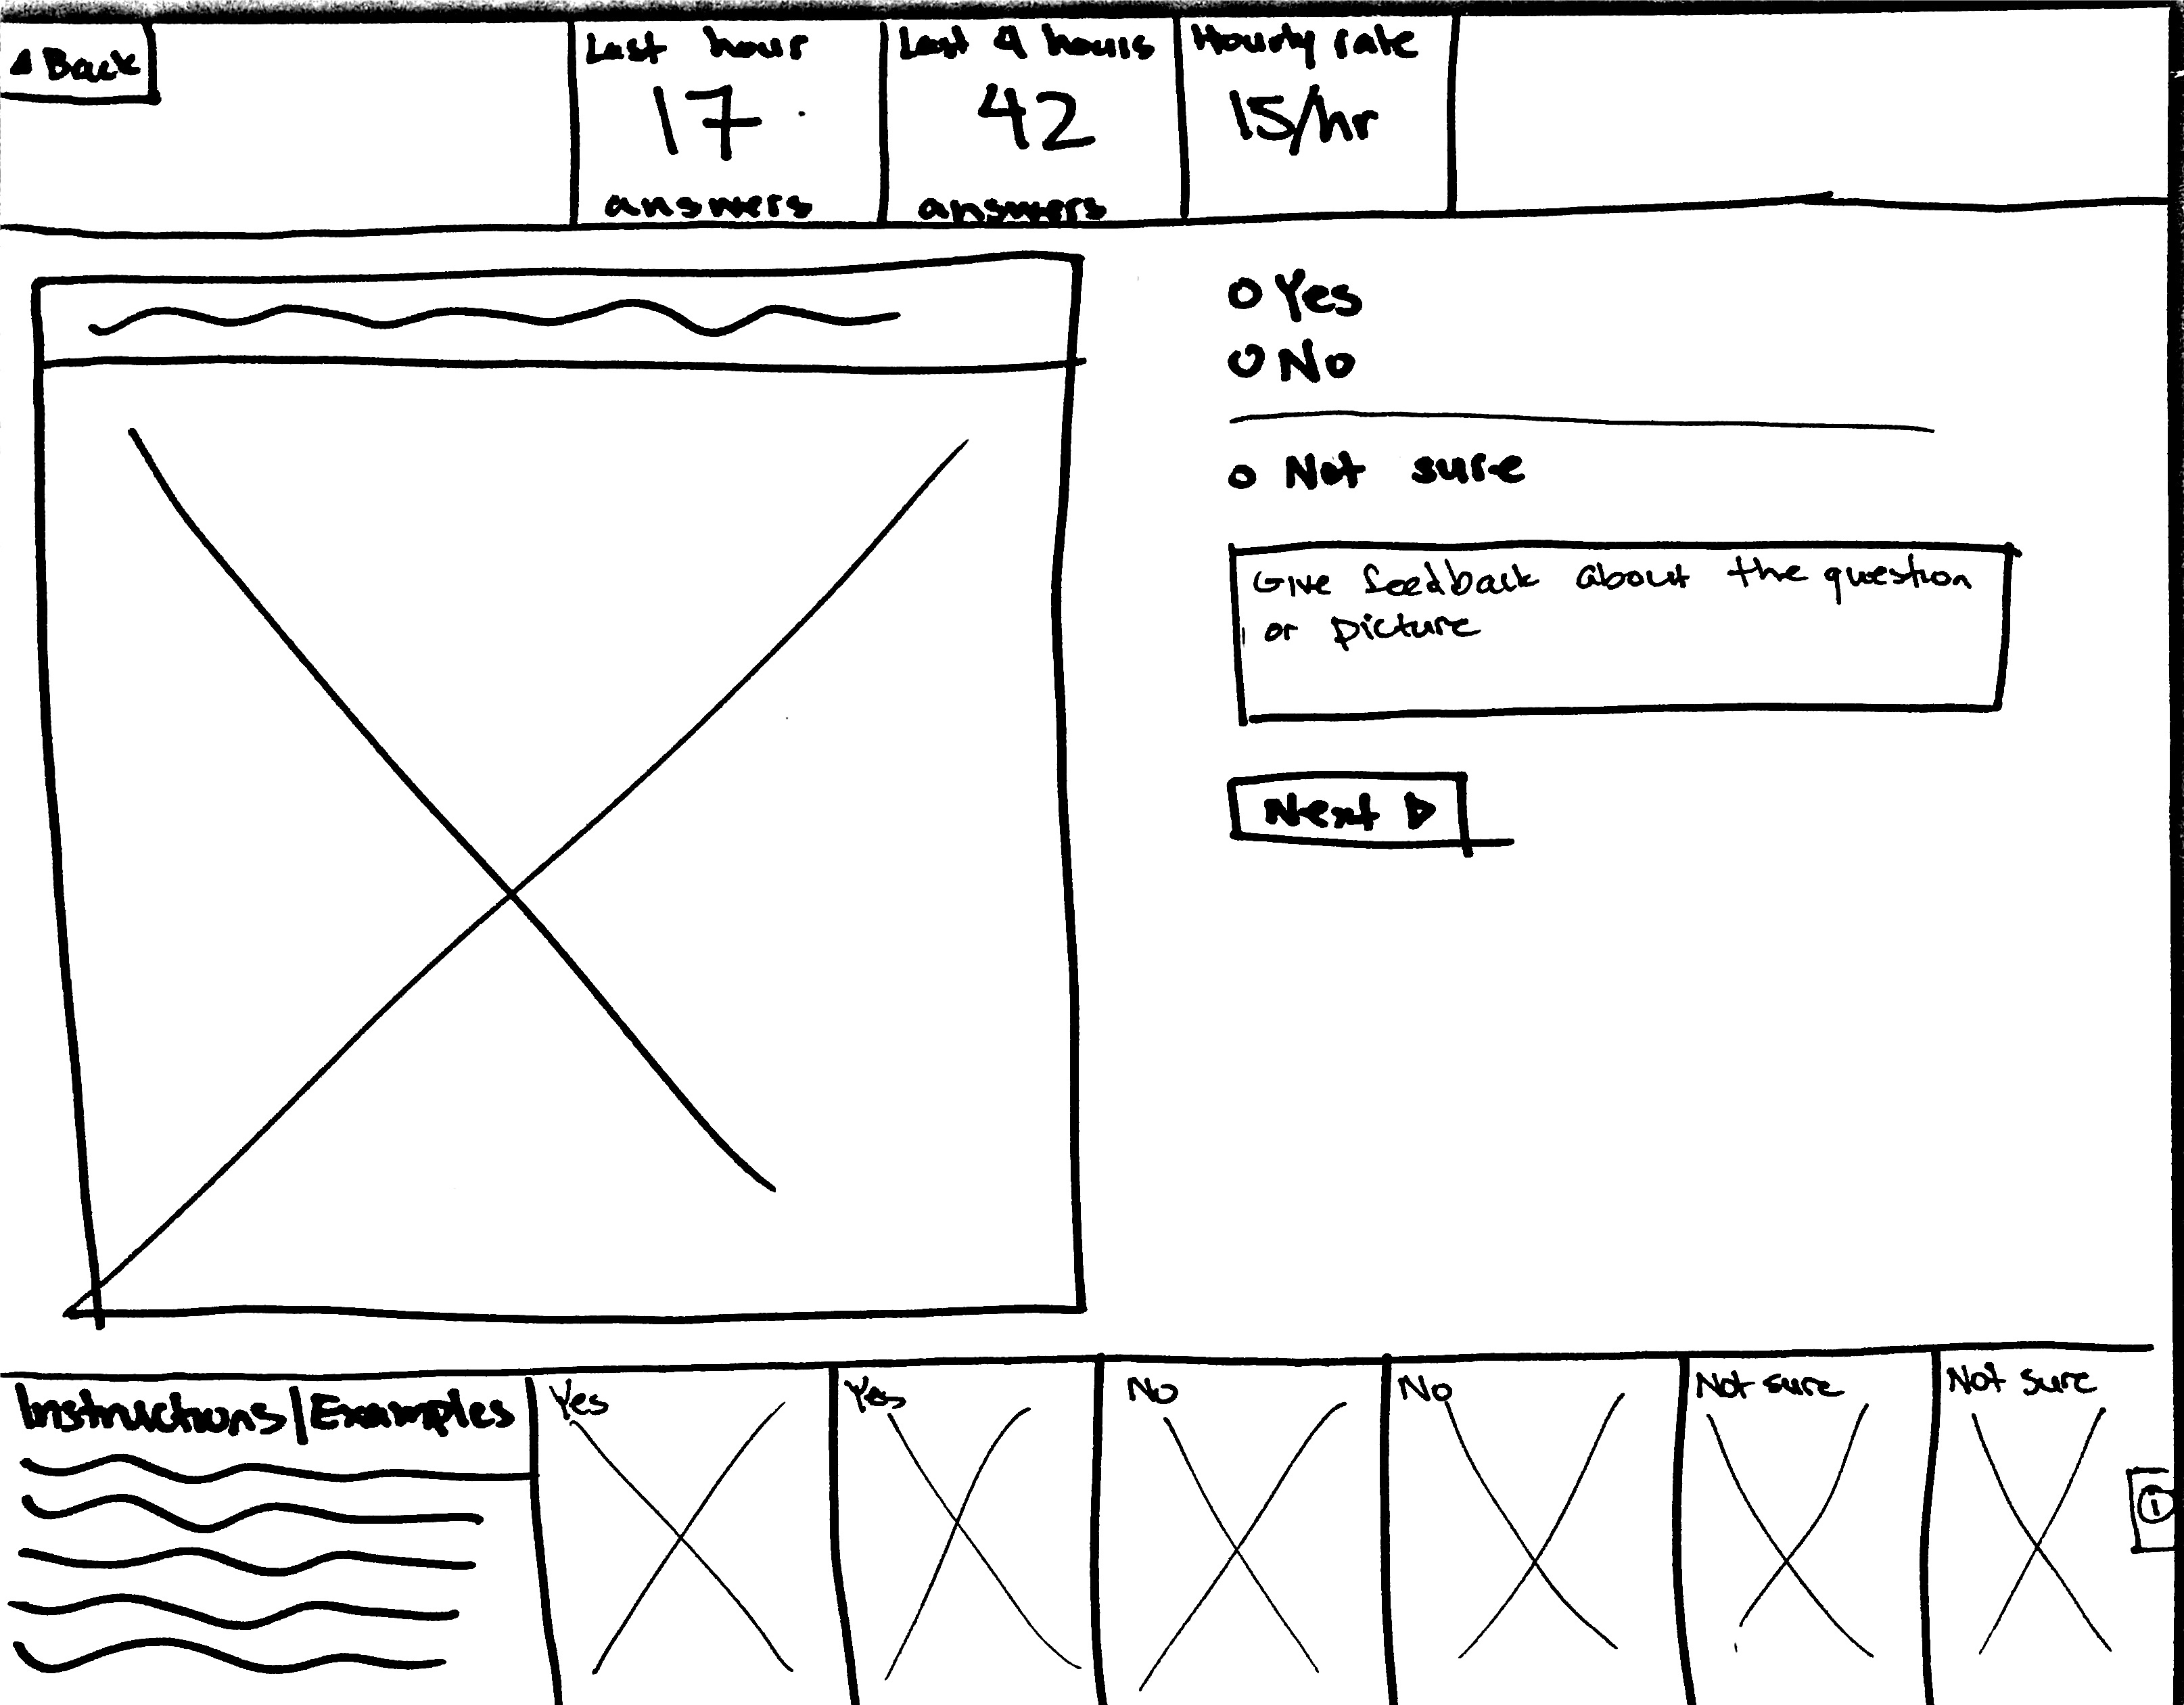 Back
Last hour
17
answers
Last 4 hours
42
answers
Hourly rate
15/hr
Yes
No
Not sure
Give feedback about the question
or picture
Next
Instructions/Examples
Yes
Yes
No
No
Not sure
Not sure
i